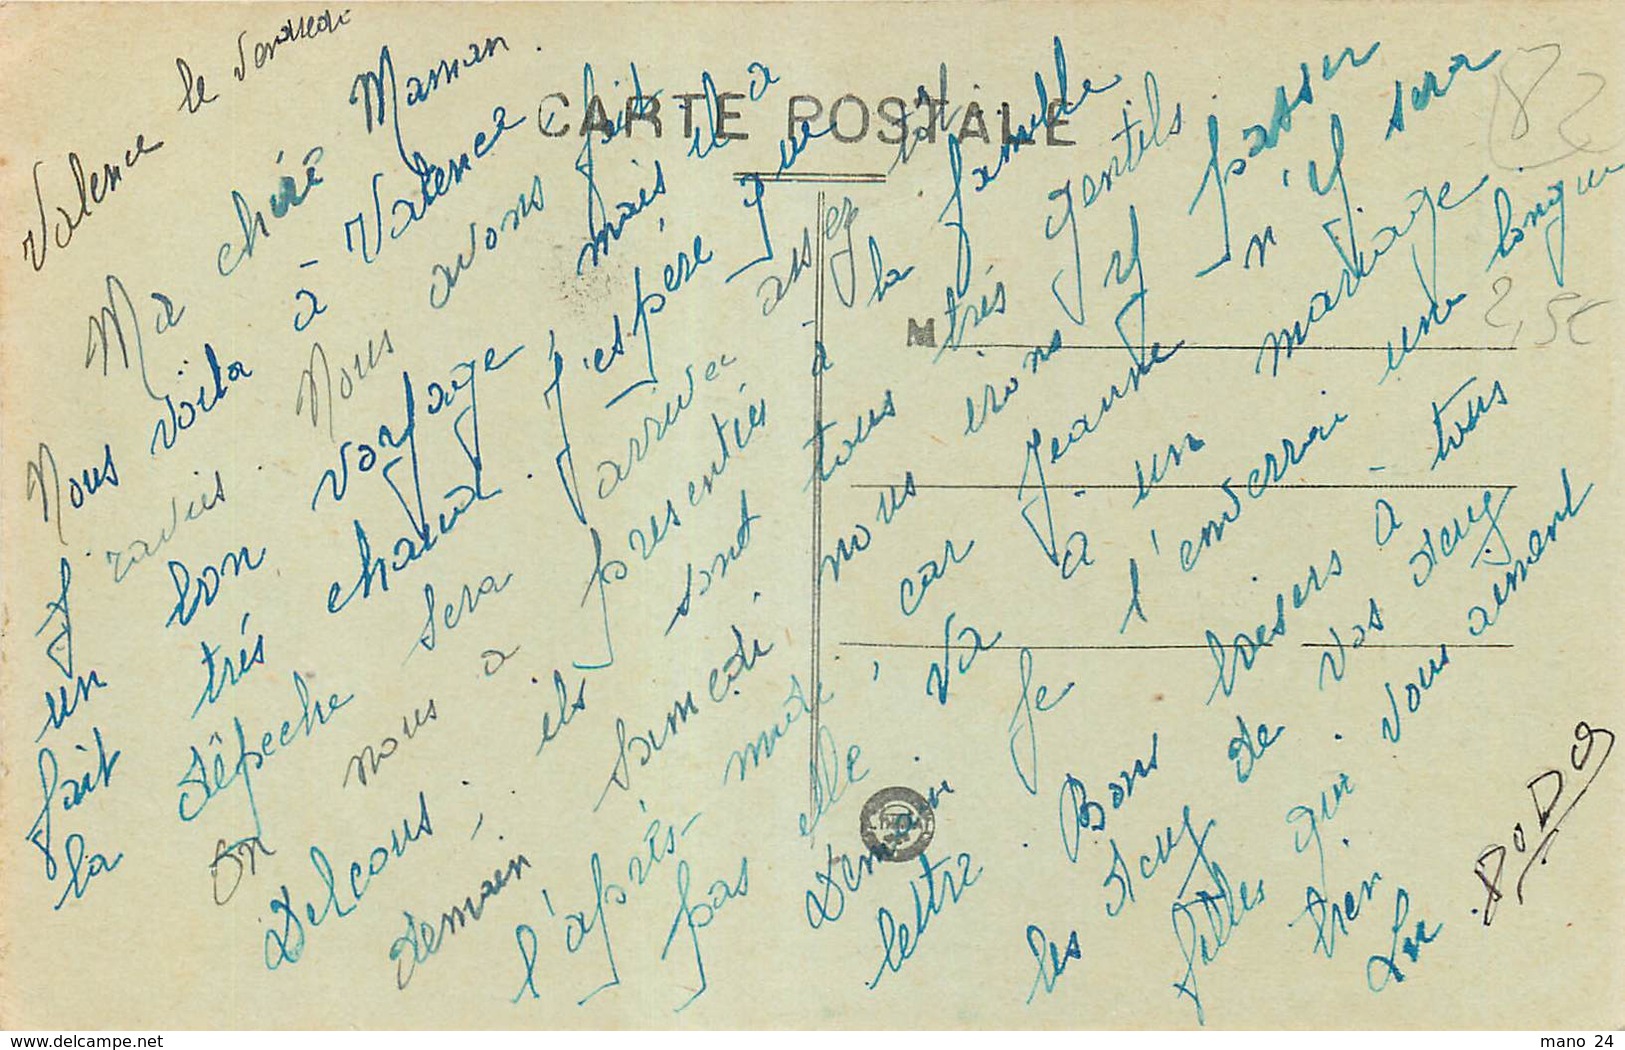 Valence le Vendredi
Ma chéré Maman.
Nous voïla à Valence.
J ravies. Nous avons fait
un bon voyage mais il a
fait trés chaud. J'espére que tot
la dêpeche sera arrivée assez
On nous a presentiés à la famille
Delcous, ils sont tous trés gentils
demain samedi nous irons y passer
l'aprés-midi, car Jeanne n'y sera
pas elle va à un mariage
Demain je t'enverrai une longue
lettre. Bons baisers à tous
les deux de vos deux
filles qui vous aiment
bien.
Lu DoDo
CARTE POSTALE
M
82
2,5€
delcampe.net
mano_24